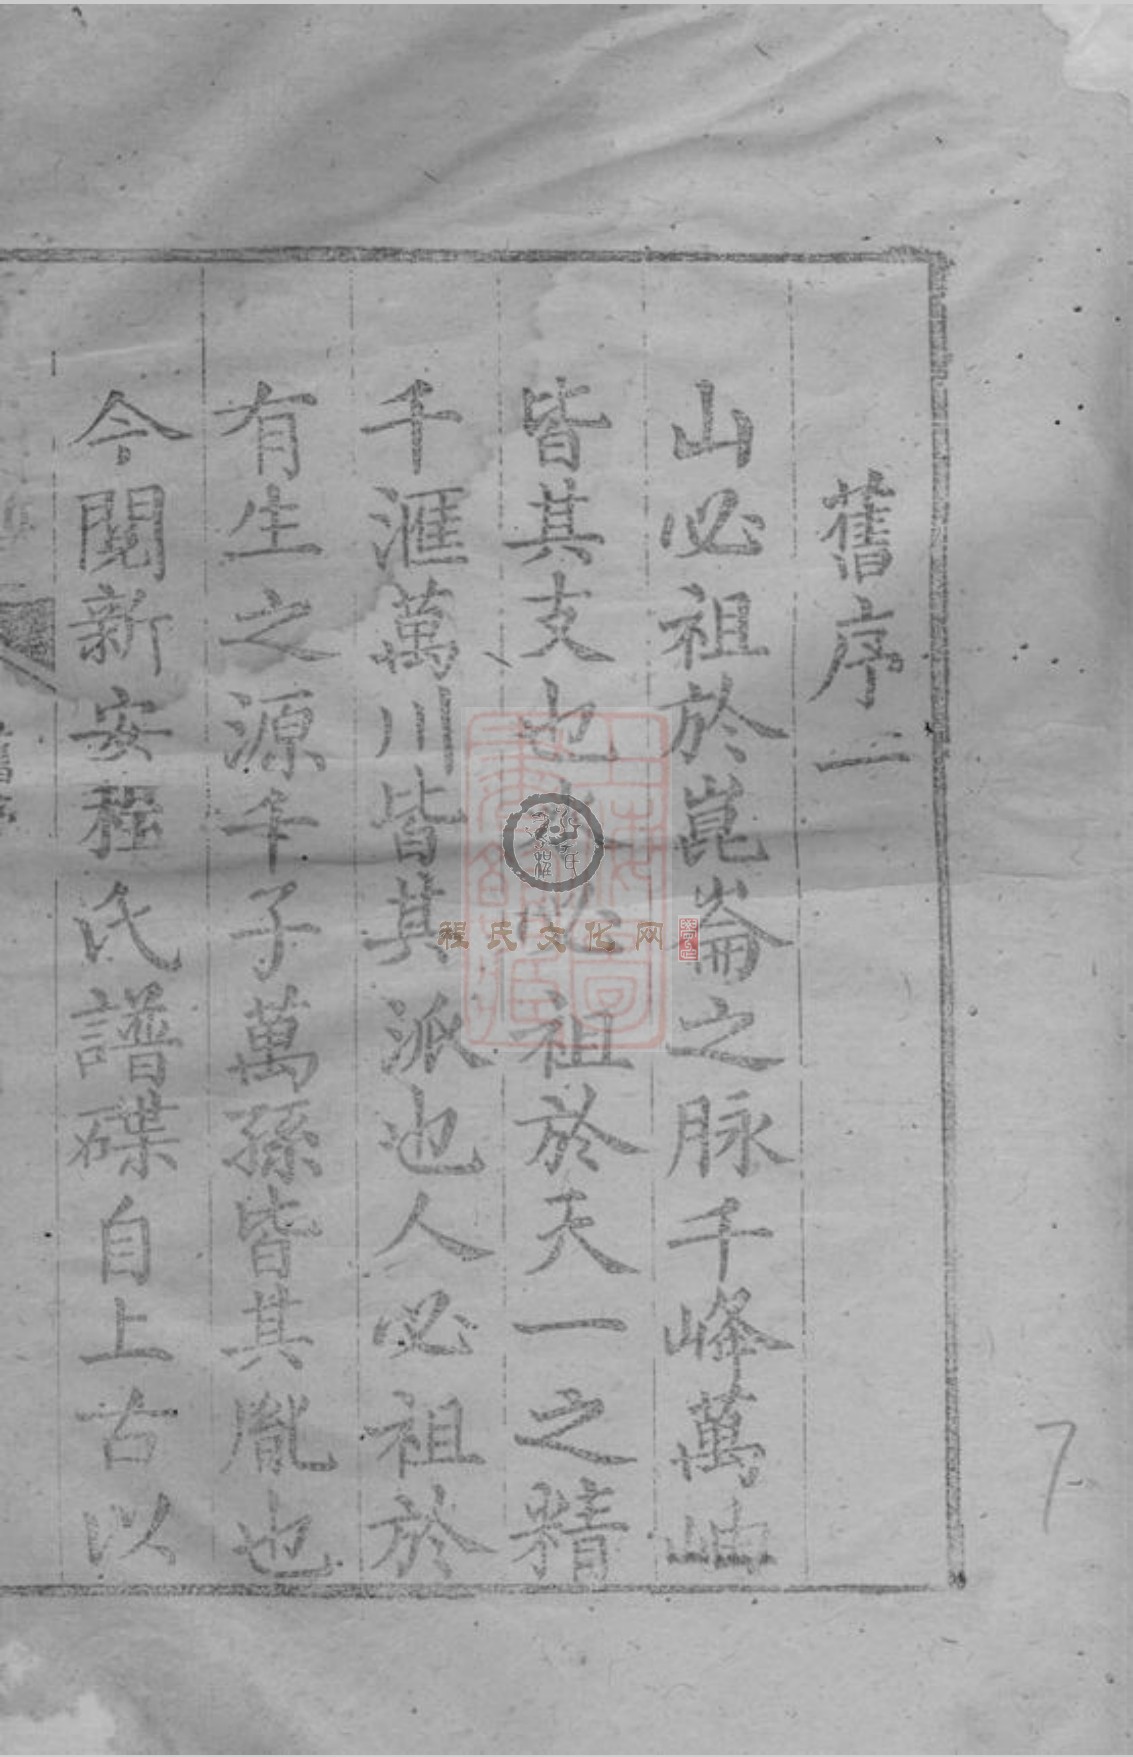 舊序二
山必祖於崑崙之脉千峰萬岫
皆其支也水必祖於天一之精
千滙萬川皆其派也人必祖於
有生之源千子萬孫皆其胤也
今閱新安程氏譜碟自上古以
程氏文化网
7